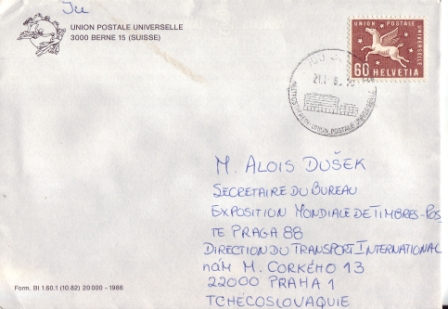 UNION POSTALE UNIVERSELLE
3000 BERNE 15 (SUISSE)
UNION POSTALE UNIVERSELLE
60 HELVETIA
UNION POSTALE UNIVERSELLE
M. ALOIS DUŠEK
SECRETAIRE DU BUREAU
EXPOSITION MONDIALE DE TIMBRES-POS
TE PRAGA 88
DIRECTION DU TRANSPORT INTERNATIONAL
NÁM M. CORKÉHO 13
22000 PRAHA 1
TCHÉCOSLOVAQUIE
Form. BI 1.60.1 (10.82) 20 000 - 1986